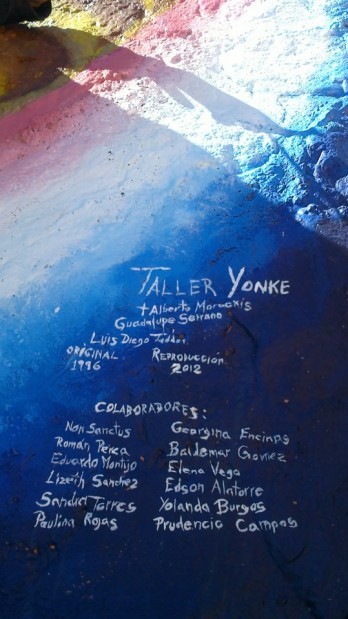 TALLER YONKE
+ Alberto Morackis
Guadalupe Serrano
Luis Diego Taddei
ORIGINAL 1996
REPRODUCCIÓN 2012
COLABORADORES:
Non Sanctus
Román Perea
Eduardo Montijo
Lizeth Sanchez
Sandra Torres
Paulina Rojas
Georgina Encinas
Baldemar Gomez
Elena Vega
Edson Alatorre
Yolanda Burgos
Prudencio Campos